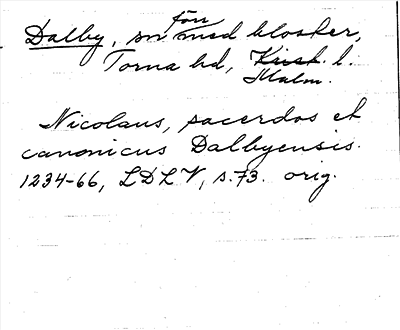 Dalby, sn med kloster,
Torna hd, Krist. l.
Malm.
Nicolaus, sacerdos et
canonicus Dalbyensis.
1234-66, LDLV, s. 73. orig.